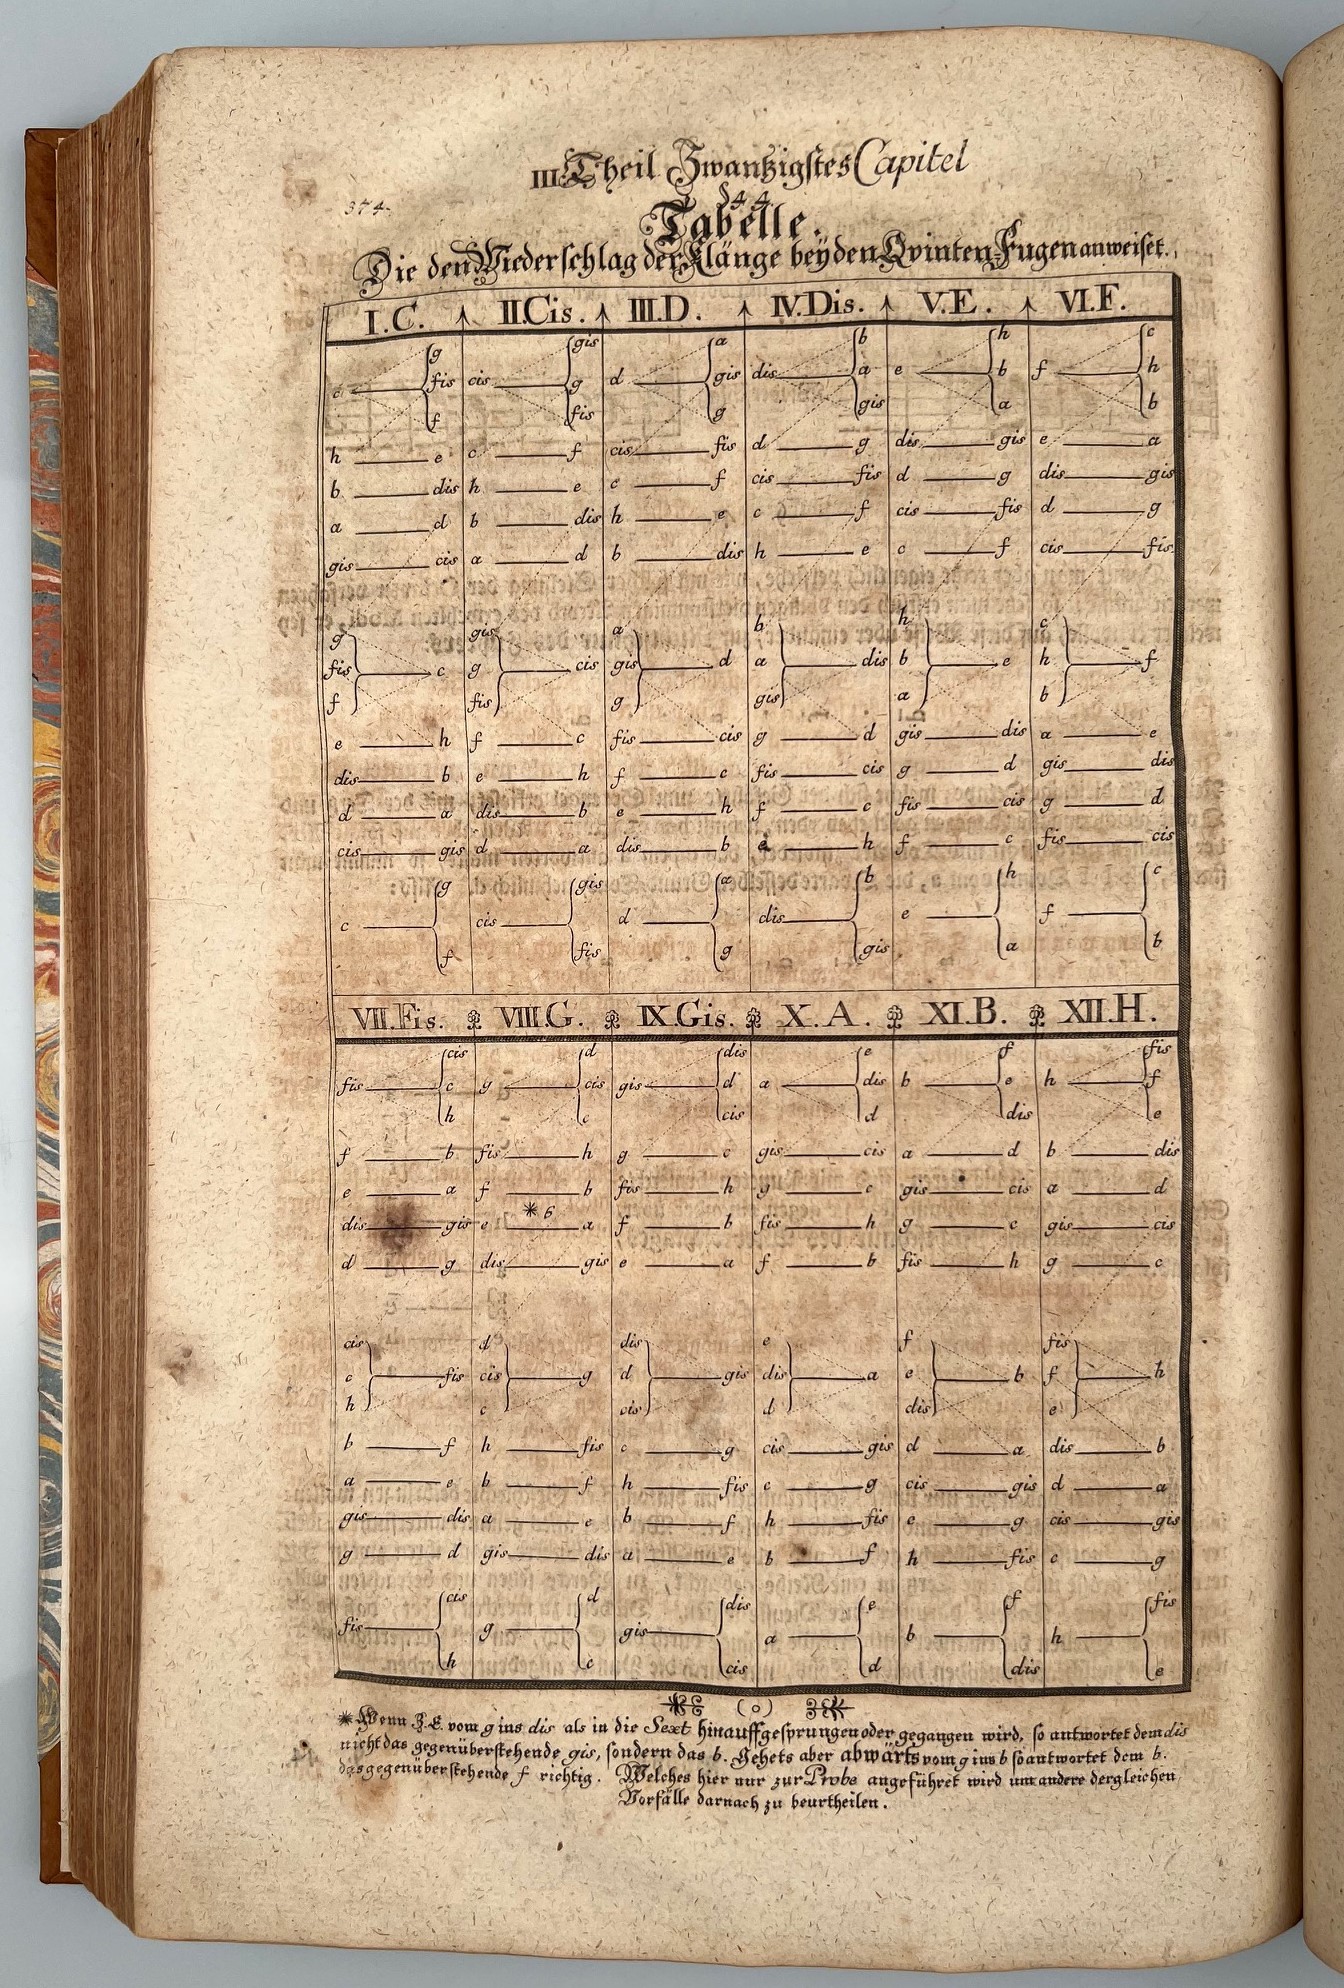 III Theil Zwantzigstes Capitel
374.
§ 44
Tabelle.
Die den Wiederschlag der Klänge bey den Qvinten-Fugen anweiset.
I.C. II.Cis. III.D. IV.Dis. V.E. VI.F.
g gis a b h c
c fis cis g d gis dis a e b f h
f fis g gis a b
h e c f cis fis d g dis gis e a
b dis h e c f cis fis d g dis gis
a d b dis h e c f cis fis d g
gis cis a d b dis h e c f cis fis
g gis a b h c
fis c g cis gis d a dis b e h f
f fis g gis a b
e h f c fis cis g d gis dis a e
dis b e h f c fis cis g d gis dis
d a dis b e h f c fis cis g d
cis gis d a dis b e h f c fis cis
g gis a b h c
c cis d dis e f
f fis g gis a b
VII.Fis. VIII.G. IX.Gis. X.A. XI.B. XII.H.
cis d dis e f fis
fis c g cis gis d a dis b e h f
h c cis d dis e
f b fis h g c gis cis a d b dis
e a f b fis h g c gis cis a d
* 6
dis gis e a f b fis h g c gis cis
d g dis gis e a f b fis h g c
cis d dis e f fis
c fis cis g d gis dis a e b f h
h c cis d dis e
b f h fis c g cis gis d a dis b
a e b f h fis c g cis gis d a
gis dis a e b f h fis c g cis gis
g d gis dis a e b f h fis c g
cis d dis e f fis
fis g gis a b h
h c cis d dis e
(o)
* Wenn Z.E. vom g ins dis als in die Sext hinauff gesprungen oder gegangen wird, so antwortet dem dis
nicht das gegenüberstehende gis, sondern das b. Gehets aber abwärts vom g ins b so antwortet dem b.
das gegenüberstehende f richtig. Welches hier nur zur Probe angeführet wird um andere dergleichen
Vorfälle darnach zu beurtheilen.